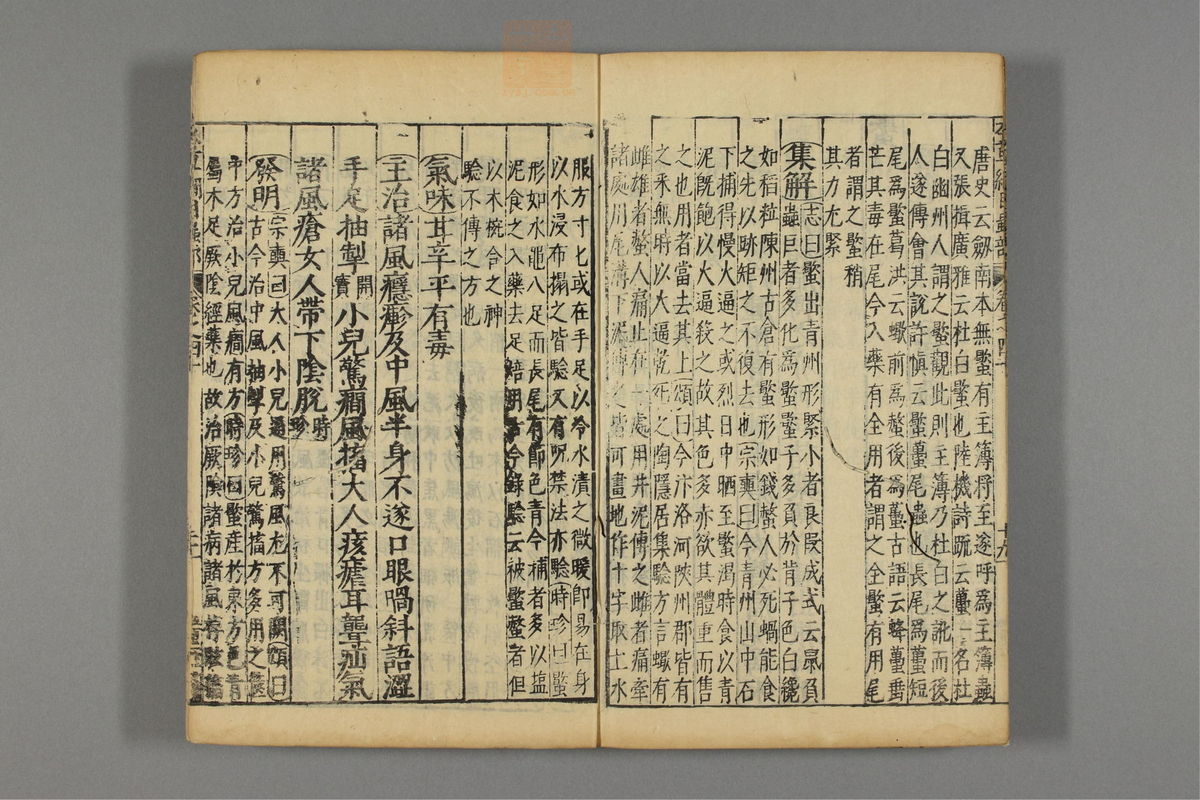 唐史云劒南本無蠆有主簿將至遂呼爲主簿蟲
又張揖廣雅云杜白蠆也陸機詩疏云蠆一名杜
白幽州人謂之蠆觀此則主簿乃杜白之訛而後
人遂傳會其說許慎云蠆蠆尾蟲也長尾爲蠆短
尾爲蠍葛洪云蠍前爲螫後爲蠆古語云蜂蠆垂
芒其毒在尾今入藥有全用者謂之全蠍有用尾
者謂之蠍稍
其力尤緊
集解志曰蠍出青州形緊小者良段成式云鼠負
蟲巨者多化爲蠍蠍子多負於背子色白纔
如稻粒陳州古倉有蠍形如錢螫人必死蝸能食
之先以跡矩之不復去也宗奭曰今青州山中石
下捕得慢火逼之或烈日中晒至蠍渴時食以青
泥旣飽以火逼殺之故其色多赤欲其體重而售
之也用者當去其土頌曰今汴洛河陝州郡皆有
之采無時以火逼乾死之陶隱居集驗方言蠍有
雌雄者螫人痛止在一處用井泥傅之雌者痛牽
諸處用 溝下泥傅之皆可畫地作十字取土水
服方寸匕或在手足以冷水漬之微暖卽易在身
以水浸布搨之皆驗又有呪禁法亦驗時珍曰蠍
形如水黽八足而長尾有節色青今捕者多以塩
泥食之入藥去足焙用 今錄驗云被蠍螫者但
以木椀合之神
驗不傳之方也
氣味甘辛平有毒
主治諸風癮疹及中風半身不遂口眼喎斜語澀
手足抽掣開寶小兒驚癇風搐大人痎瘧耳聾疝氣
諸風瘡女人帶下陰脫時珍
發明宗奭曰大人小兒通用驚風尤不可闕頌曰
古今治中風抽掣及小兒驚搐方多用之
平方治小兒風癇有方時珍曰蠍產於東方色青
屬木足厥陰經藥也故治厥陰諸病諸風掉眩